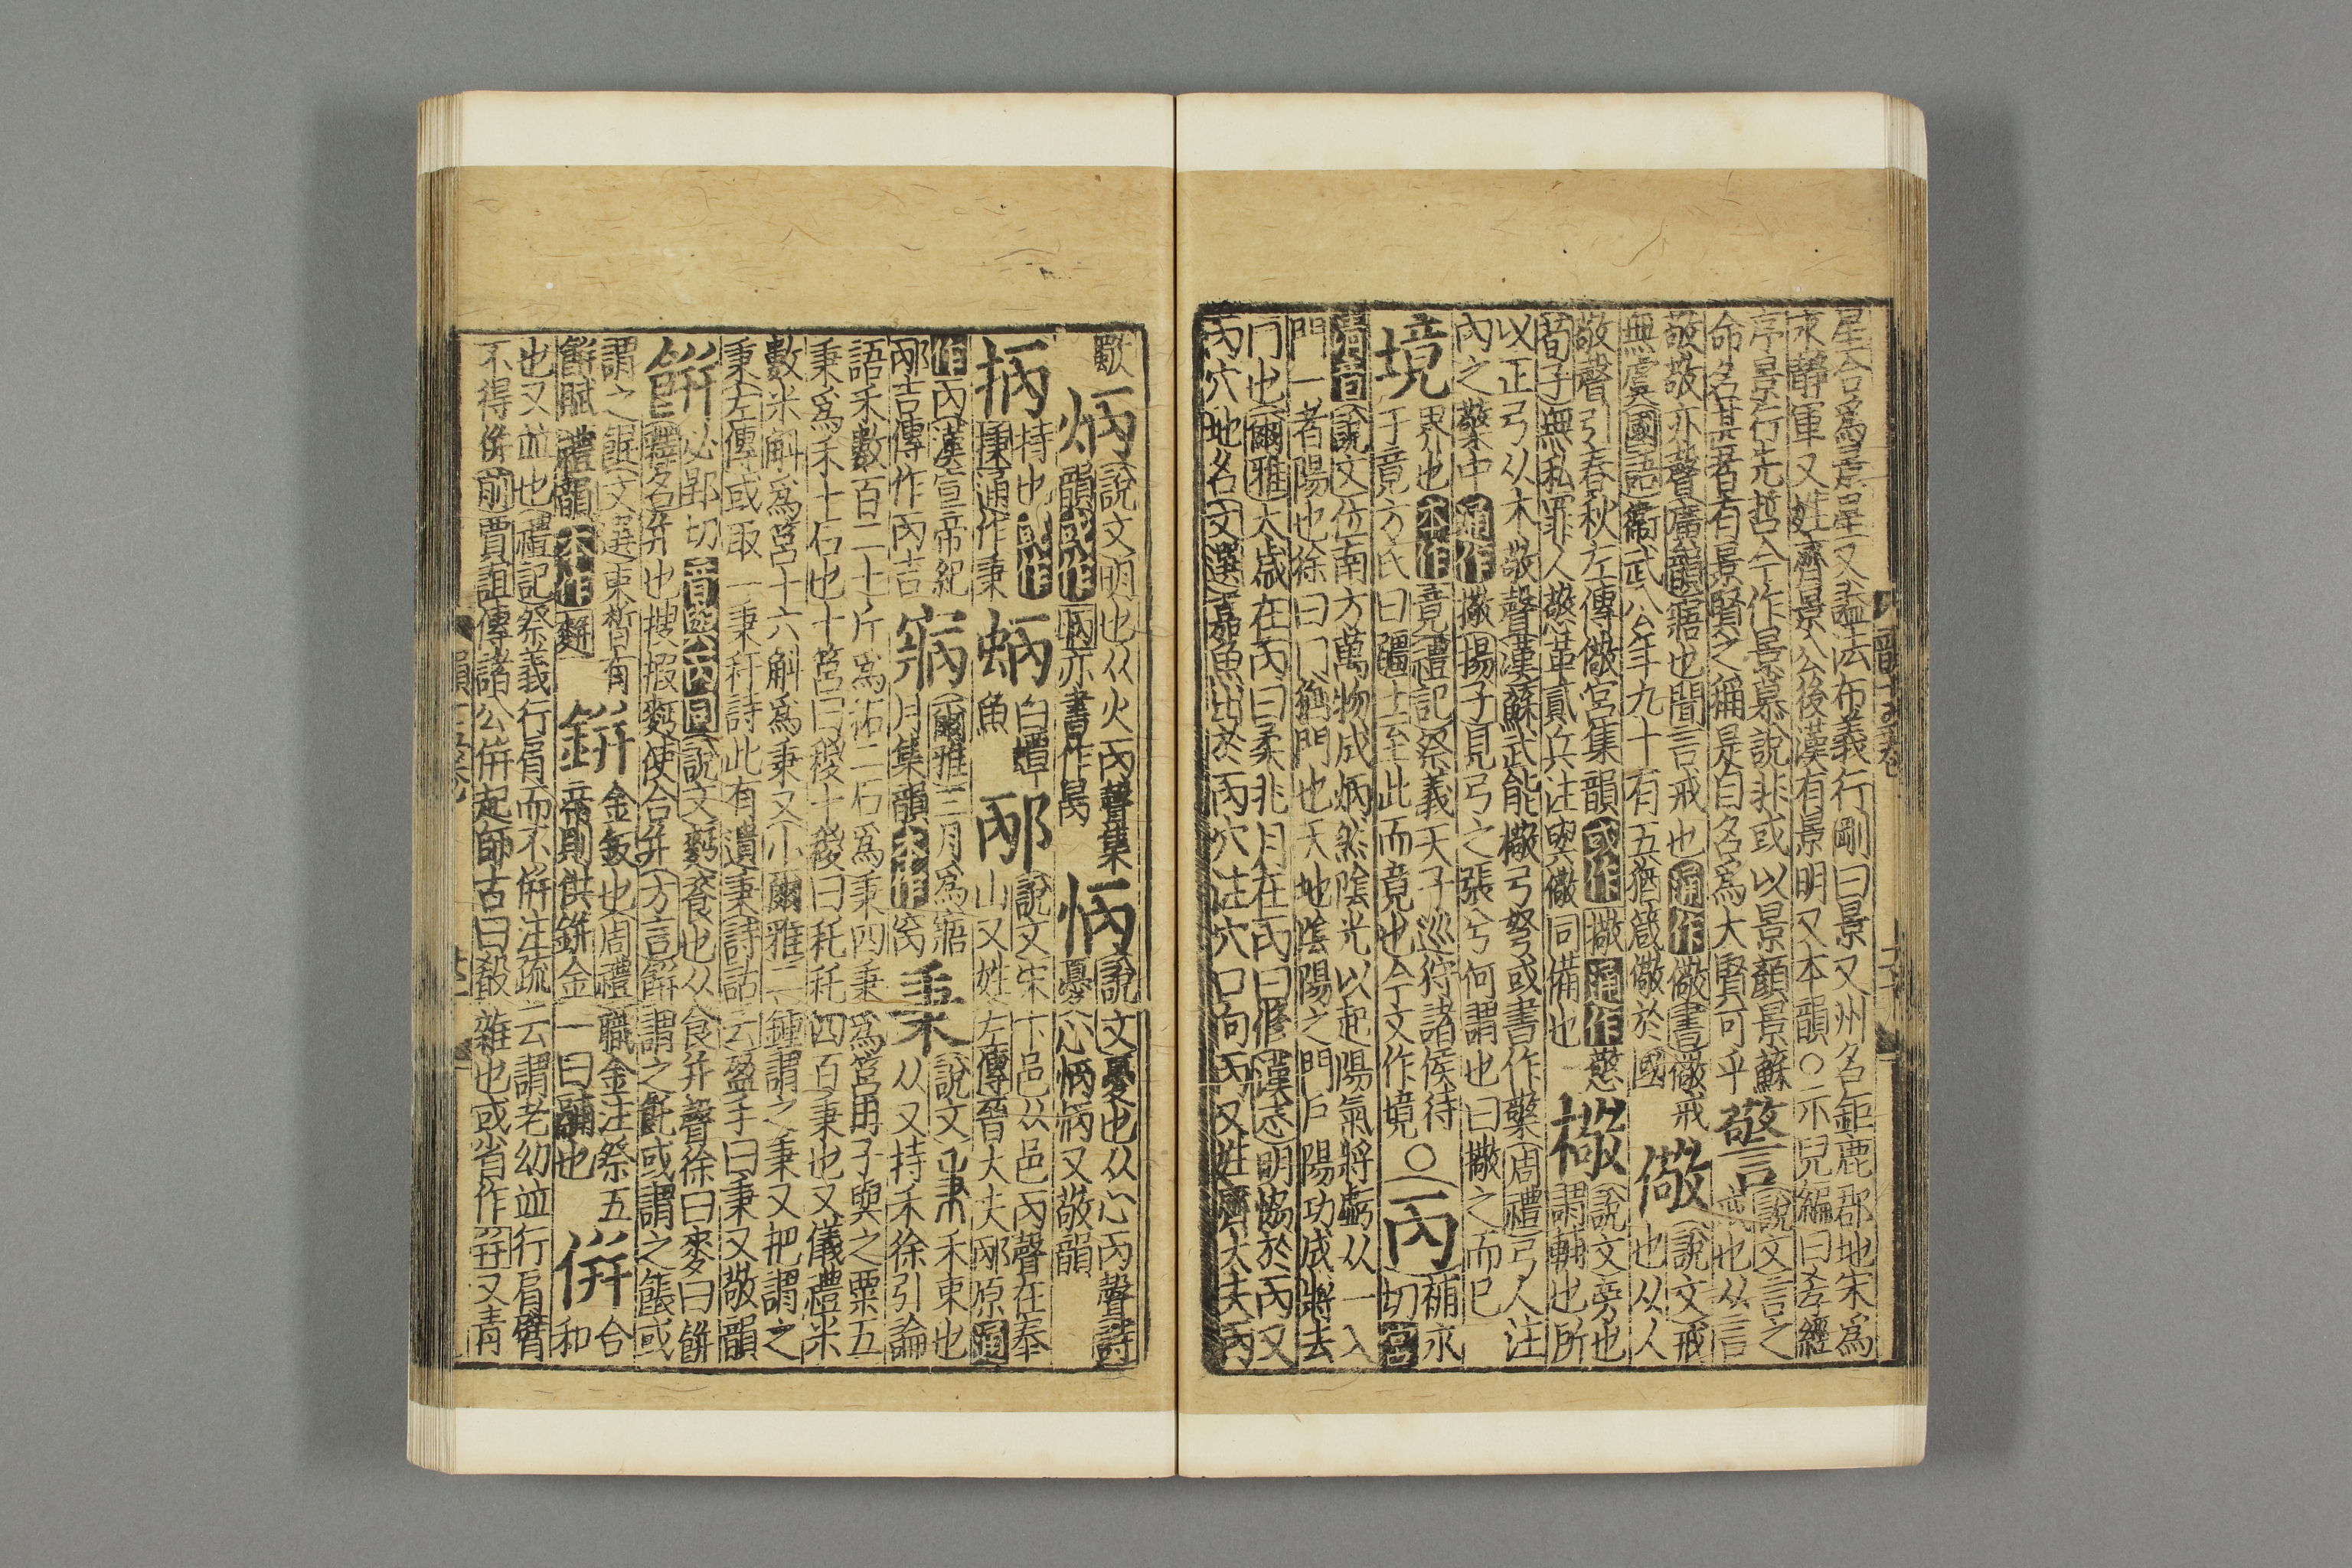 星合爲景星又謚法布義行剛曰景又州名鉅鹿郡地宋爲
永靜軍又姓齊景公後漢有景明又本韻○示兒編曰孝經
序景行先哲今作景慕說非或以景顏景蘇
命名甚者有景賢之稱是自名爲大賢可乎
警
說文言之
戒也从言
敬敬亦聲廣韻寤也聞言戒也通作儆書儆戒
無虞國語衛武公年九十有五猶箴儆於國
儆
說文戒
也从人
敬聲引春秋左傳儆宮集韻或作㩋通作憼
荀子無私罪人憼革貳兵注與儆同備也
檠
說文㫄也
謂輔也所
以正弓从木敬聲漢蘇武能檠弓弩或書作檠周禮弓人注
內之檠中通作㩋揚子見弓之張兮何謂也曰㩋之而已
境
界也本作竟禮記祭義天子巡狩諸侯待
于竟方氏曰疆土至此而竟也今文作境
○丙
補永
切宮
清音說文位南方萬物成炳然陰光以起陽氣將虧从一入
門一者陽也徐曰門猶門也天地陰陽之門戶陽功成將去
冂也爾雅太歲在丙曰柔兆月在丙曰修漢志明炳於丙又
丙穴地名文選嘉魚出於丙穴注穴口向丙又姓齊大夫丙
歜
炳
說文明也从火丙聲集
韻或作昞亦書作昺
怲
說文憂也从心丙聲詩
憂心怲怲又敬韻
抦
持也或作
𢴦通作秉
蛃
白蟫
魚
邴
說文宋下邑从邑丙聲在泰
山又姓左傳晉大夫邴原通
作丙漢宣帝紀
邴吉傳作丙吉
寎
爾雅三月爲寎
月集韻本作窉
秉
說文禾束也
从又持禾徐引論
語禾數百二十斤爲石二石爲秉四秉爲筥冉子與之粟五
秉爲禾十石也十筥曰稯十稯曰秅秅四百秉也又儀禮米
數米斛爲筥十六斛爲秉又小爾雅二鍾謂之秉又把謂之
秉左傳或取一秉秆詩此有遺秉詩詁云盈手曰秉又敬韻
餅
必郢切音與丙同說文麪餈也从食幷聲徐曰麥曰餅
釋名幷也搜报麪使合幷方言餅謂之飥或謂之餦或
謂之餛文選束晳有
餅賦禮韻本作䴵
鉼
金鈑也周禮職金注祭五
帝則供鉼金一曰鬴也
併
合
和
也又並也禮記祭義行肩而不併注疏云謂老幼並行肩臂
不得併前賈誼傳諸公併起師古曰殽雜也或省作幷又青